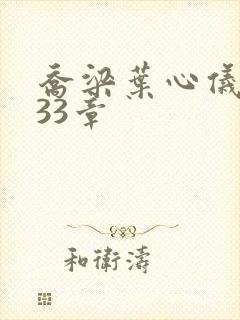 乔梁葉心儀
33章
和衛濤